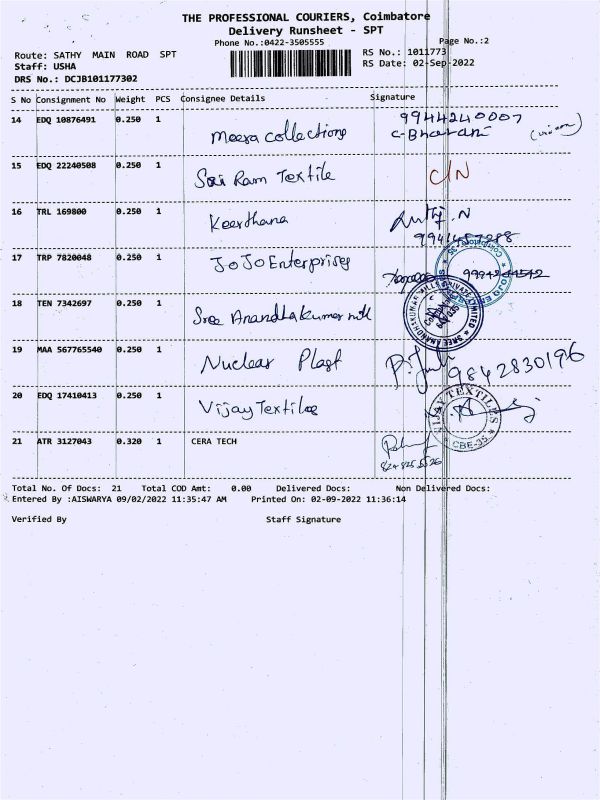 THE PROFESSIONAL COURIERS, Coimbatore
Delivery Runsheet - SPT
Phone No.:0422-3505555 Page No.:2
Route: SATHY MAIN ROAD SPT RS No.: 1011773
Staff: USHA RS Date: 02-Sep-2022
DRS No.: DCJB101177302
S No Consignment No Weight PCS Consignee Details Signature
14 EDQ 10876491 0.250 1 Meera collections 9944240007
C-Bharani
15 EDQ 22240508 0.250 1 Sri Ram Textile C/N
16 TRL 169800 0.250 1 Keerthana
17 TRP 7820048 0.250 1 JoJo Enterprises
18 TEN 7342697 0.250 1 Sree Anandhakumar mill
SREE ANANDHAKUMAR MILLS PRIVATE LIMITED
19 MAA 567765540 0.250 1 Nuclear Plast 9842830196
20 EDQ 17410413 0.250 1 Vijay Textiles
VIJAY TEXTILES
CBE-35
21 ATR 3127043 0.320 1 CERA TECH
Total No. Of Docs: 21 Total COD Amt: 0.00 Delivered Docs: Non Delivered Docs:
Entered By :AISWARYA 09/02/2022 11:35:47 AM Printed On: 02-09-2022 11:36:14
Verified By Staff Signature